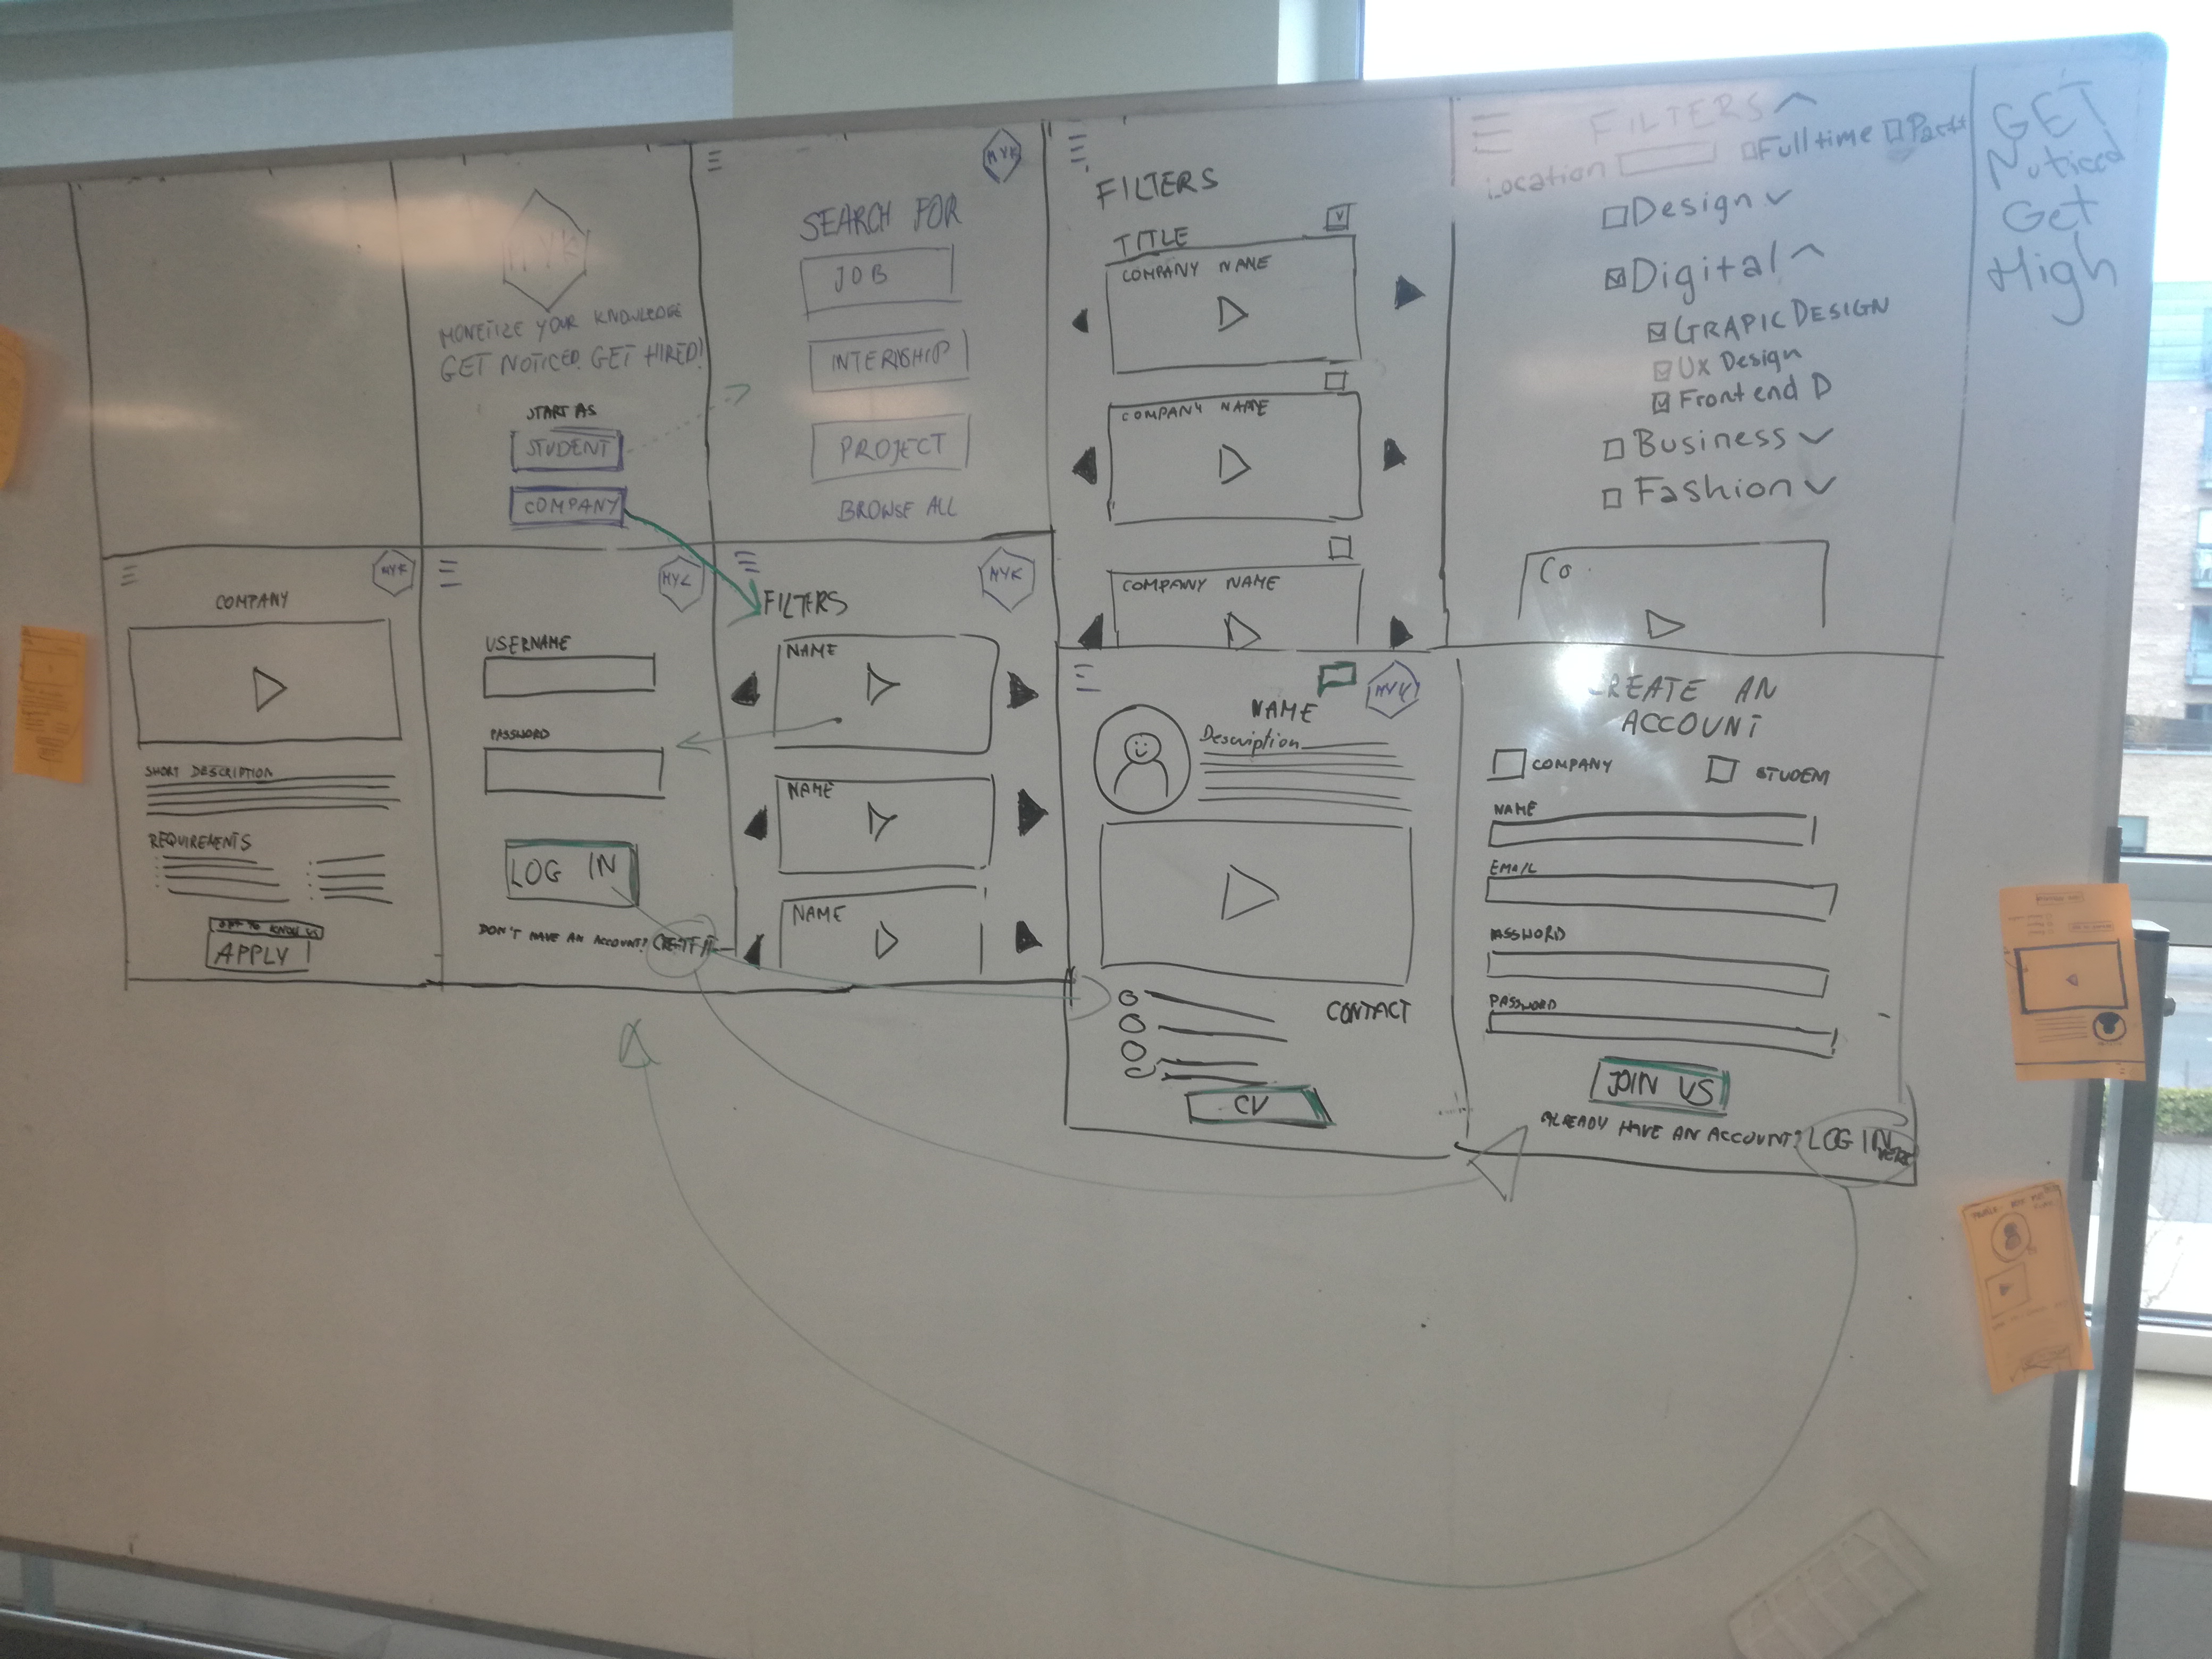 MYK
MONETIZE YOUR KNOWLEDGE
GET NOTICED. GET HIRED!
START AS
STUDENT
COMPANY
MYK
SEARCH FOR
JOB
INTERNSHIP
PROJECT
BROWSE ALL
FILTERS
TITLE
COMPANY NAME
COMPANY NAME
COMPANY NAME
FILTERS
Location Full time Part
Design
Digital
GRAPIC DESIGN
UX Design
Front end D
Business
Fashion
Co.
GET
Noticed
Get
High
MYK
COMPANY
SHORT DESCRIPTION
REQUIREMENTS
GET TO KNOW US
APPLY
MYK
USERNAME
PASSWORD
LOG IN
DON'T HAVE AN ACCOUNT? CREATE IT
MYK
FILTERS
NAME
NAME
NAME
MYK
NAME
Description
CONTACT
CV
CREATE AN
ACCOUNT
COMPANY STUDENT
NAME
EMAIL
PASSWORD
PASSWORD
JOIN US
ALREADY HAVE AN ACCOUNT? LOG IN HERE